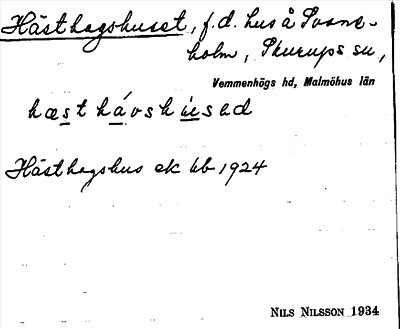 Hästhagshuset, f.d. hus å Svane-
holm, Skurups sn,
Vemmenhögs hd, Malmöhus län
hæst hávshùsəd
Hästhagshus ek kb 1924
NILS NILSSON 1934